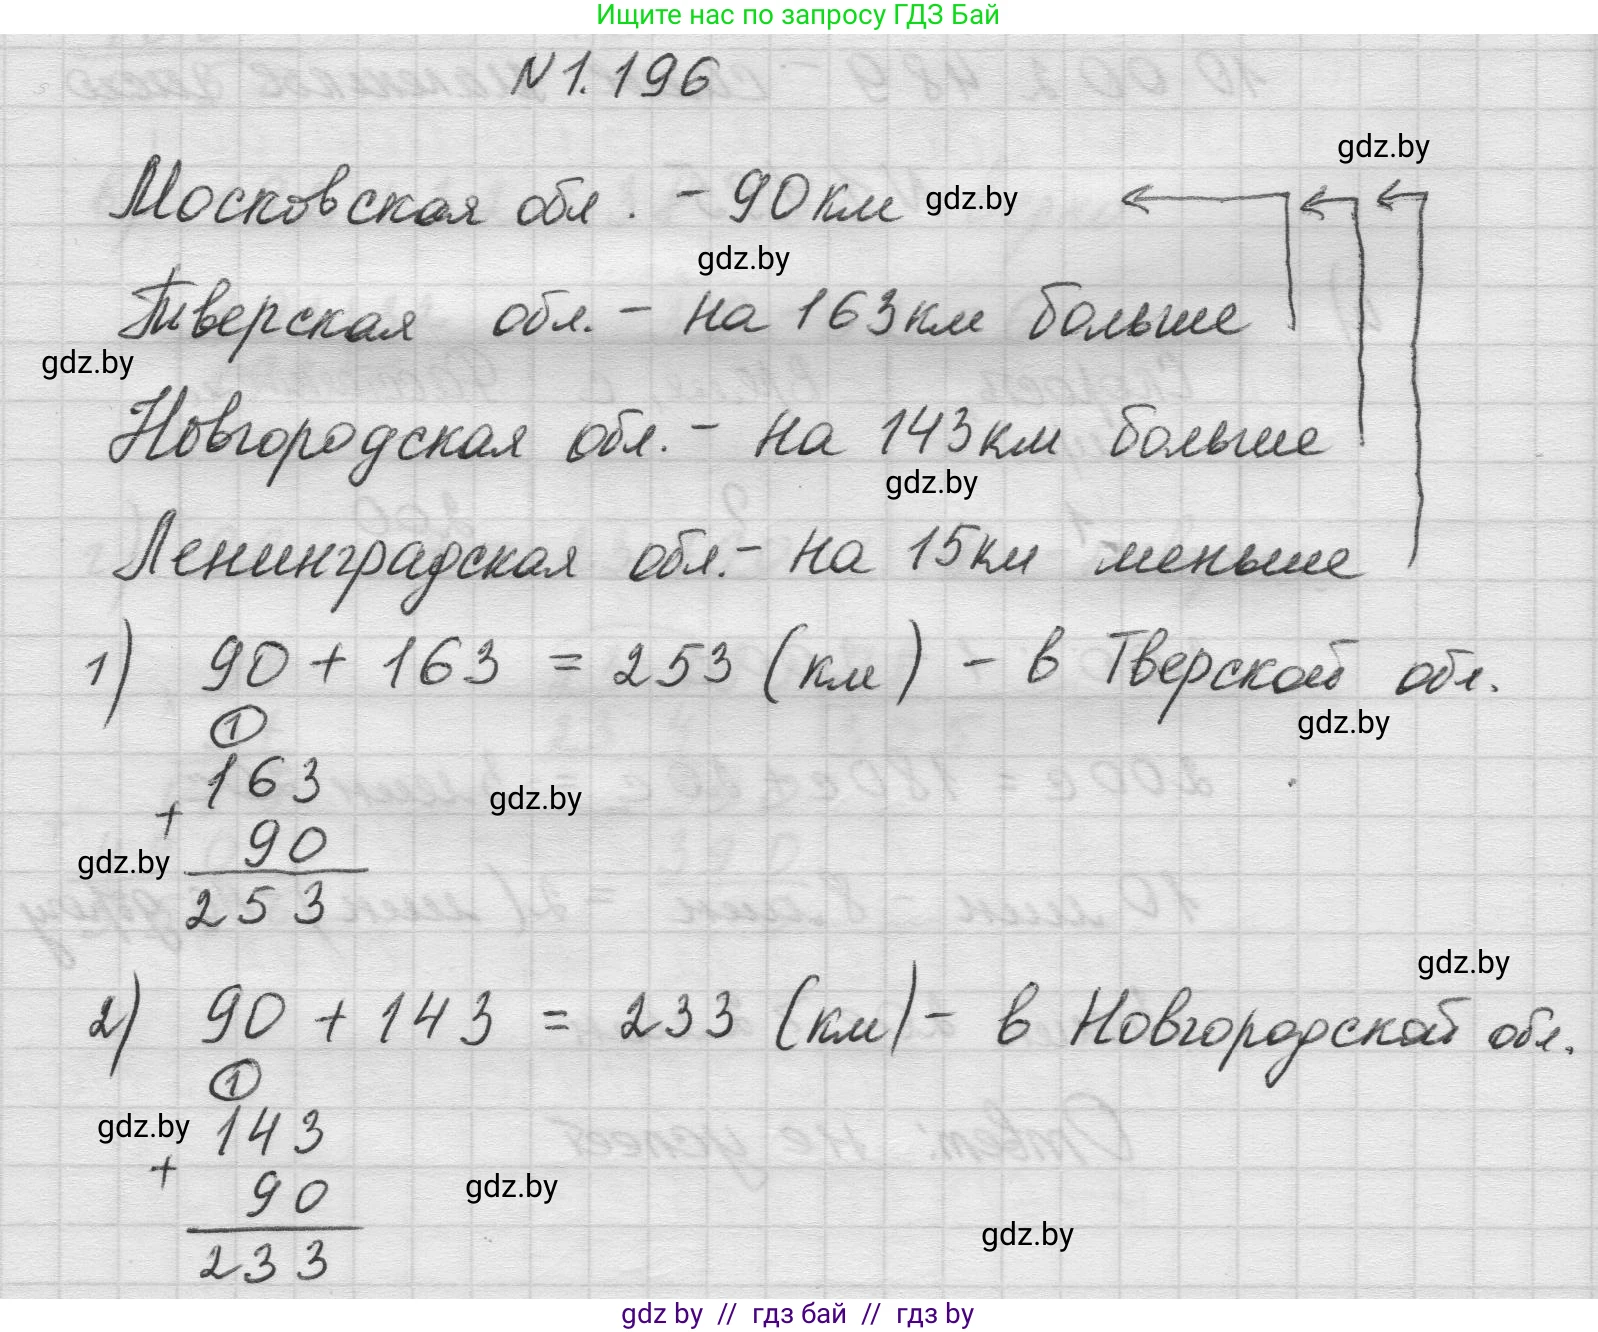 Ищите нас по запросу ГДЗ Бай
N 1.196
gdz.by
Московская обл. - 90 км gdz.by
gdz.by
Тиверская обл. - на 163 км больше
gdz.by
Новгородская обл. - на 143 км больше
gdz.by
Ленинградская обл. - на 15 км меньше
1) 90 + 163 = 253 (км) - в Тверской обл.
gdz.by
1
163
+
gdz.by
90
gdz.by
253
gdz.by
2) 90 + 143 = 233 (км) - в Новгородской обл.
1
gdz.by
143
+
90
gdz.by
gdz.by
233
gdz by // гдз бай // гдз by